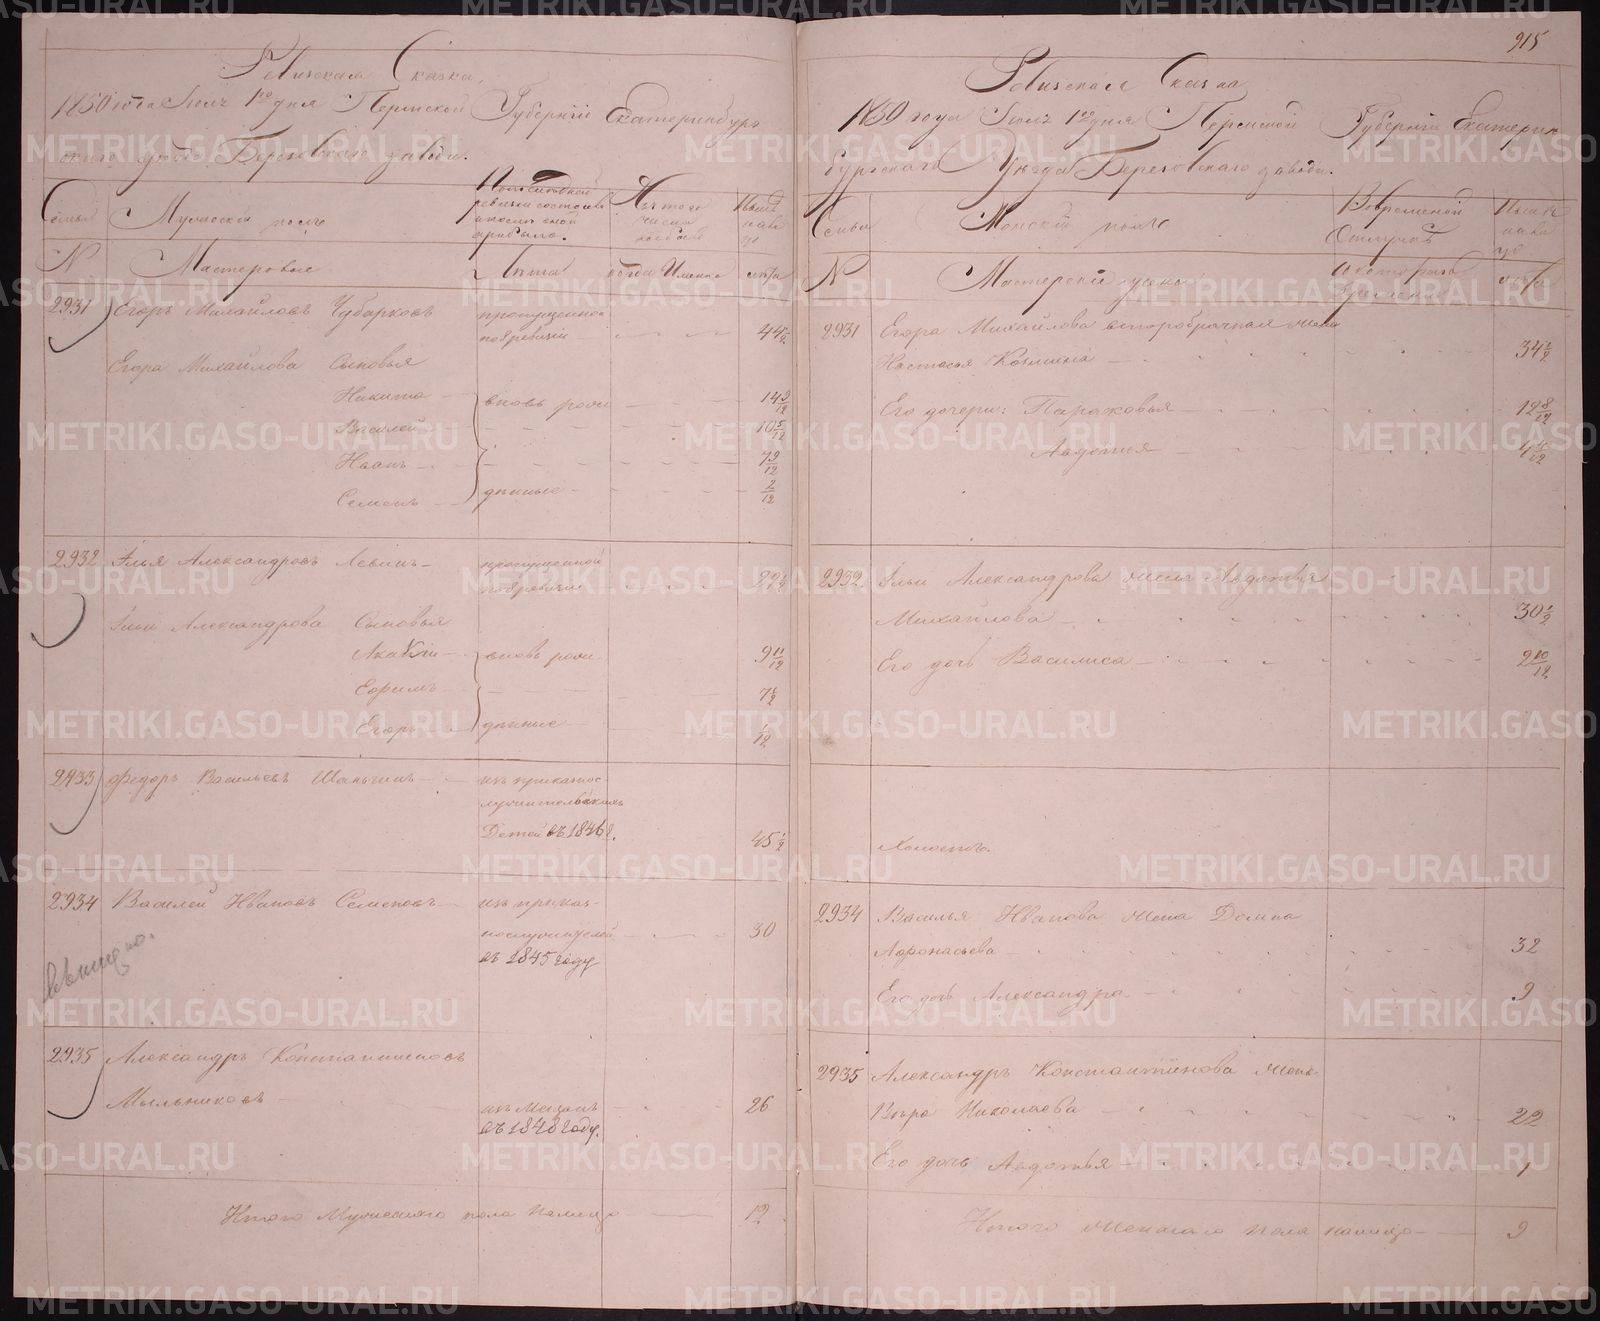 915
Ревизская Сказка.
1850 года Июля 1го дня Пермской Губернiи Екатеринбург
скаго уезда Березовскаго завода.
Семьи
Мужеской полъ
По последней
ревизiи состояло
и после оной
прибыло.
Изъ того
числа
выбыло
Ныне
на ли
цо
№
Мастеровые
Лета
когда Именно
лета
2931
Егоръ Михайловъ Чубарковъ
пропущенной
по 8 ревизiи
44½
Егора Михайлова Сыновья
Никита
вновь рож
14 9/12
Василей
10 5/12
Иванъ
7 9/12
Семенъ
денные
2/12
2932
Илья Александровъ Левинъ
пропущенной
по 8 ревизiи
Ильи Александрова Сыновья
Акакiй
вновь рож
9 11/12
Ефимъ
7½
Егоръ
денные
1/12
2933
Федоръ Васильевъ Шаньгинъ
изъ приказно
служительскихъ
Детей въ 1846 г.
45½
2934
Василей Ивановъ Семеновъ
изъ приказ-
нослужителей
въ 1845 году
30
2935
Александръ Константиновъ
Мыльниковъ
изъ Мещанъ
въ 1848 году.
26
Итого Мужескаго пола налицо
12
Ревизская Сказка
1850 года Июля 1го дня Пермской Губернiи Екатерин
бургскаго Уезда Березовскаго завода.
Семьи
Женскiй полъ
Во временной
Отлучке
Ныне
на ли
цо
№
Мастерскiя жены
лета
2931
Егора Михайлова второбрачная жена
Настасья Козмина
34½
Его дочери: Парасковья
12 8/12
Авдотья
2932
Ильи Александрова жена Авдотья
Михайлова
30½
Его дочь Василиса
2 10/12
Холостъ.
2934
Василья Иванова жена Домна
Афонасьева
32
Его дочь Александра
9
2935
Александръ Константинова жена
Вера Николаева
22
Его дочь Авдотья
1
Итого женскаго пола налицо
9
METRIKI.GASO-URAL.RU